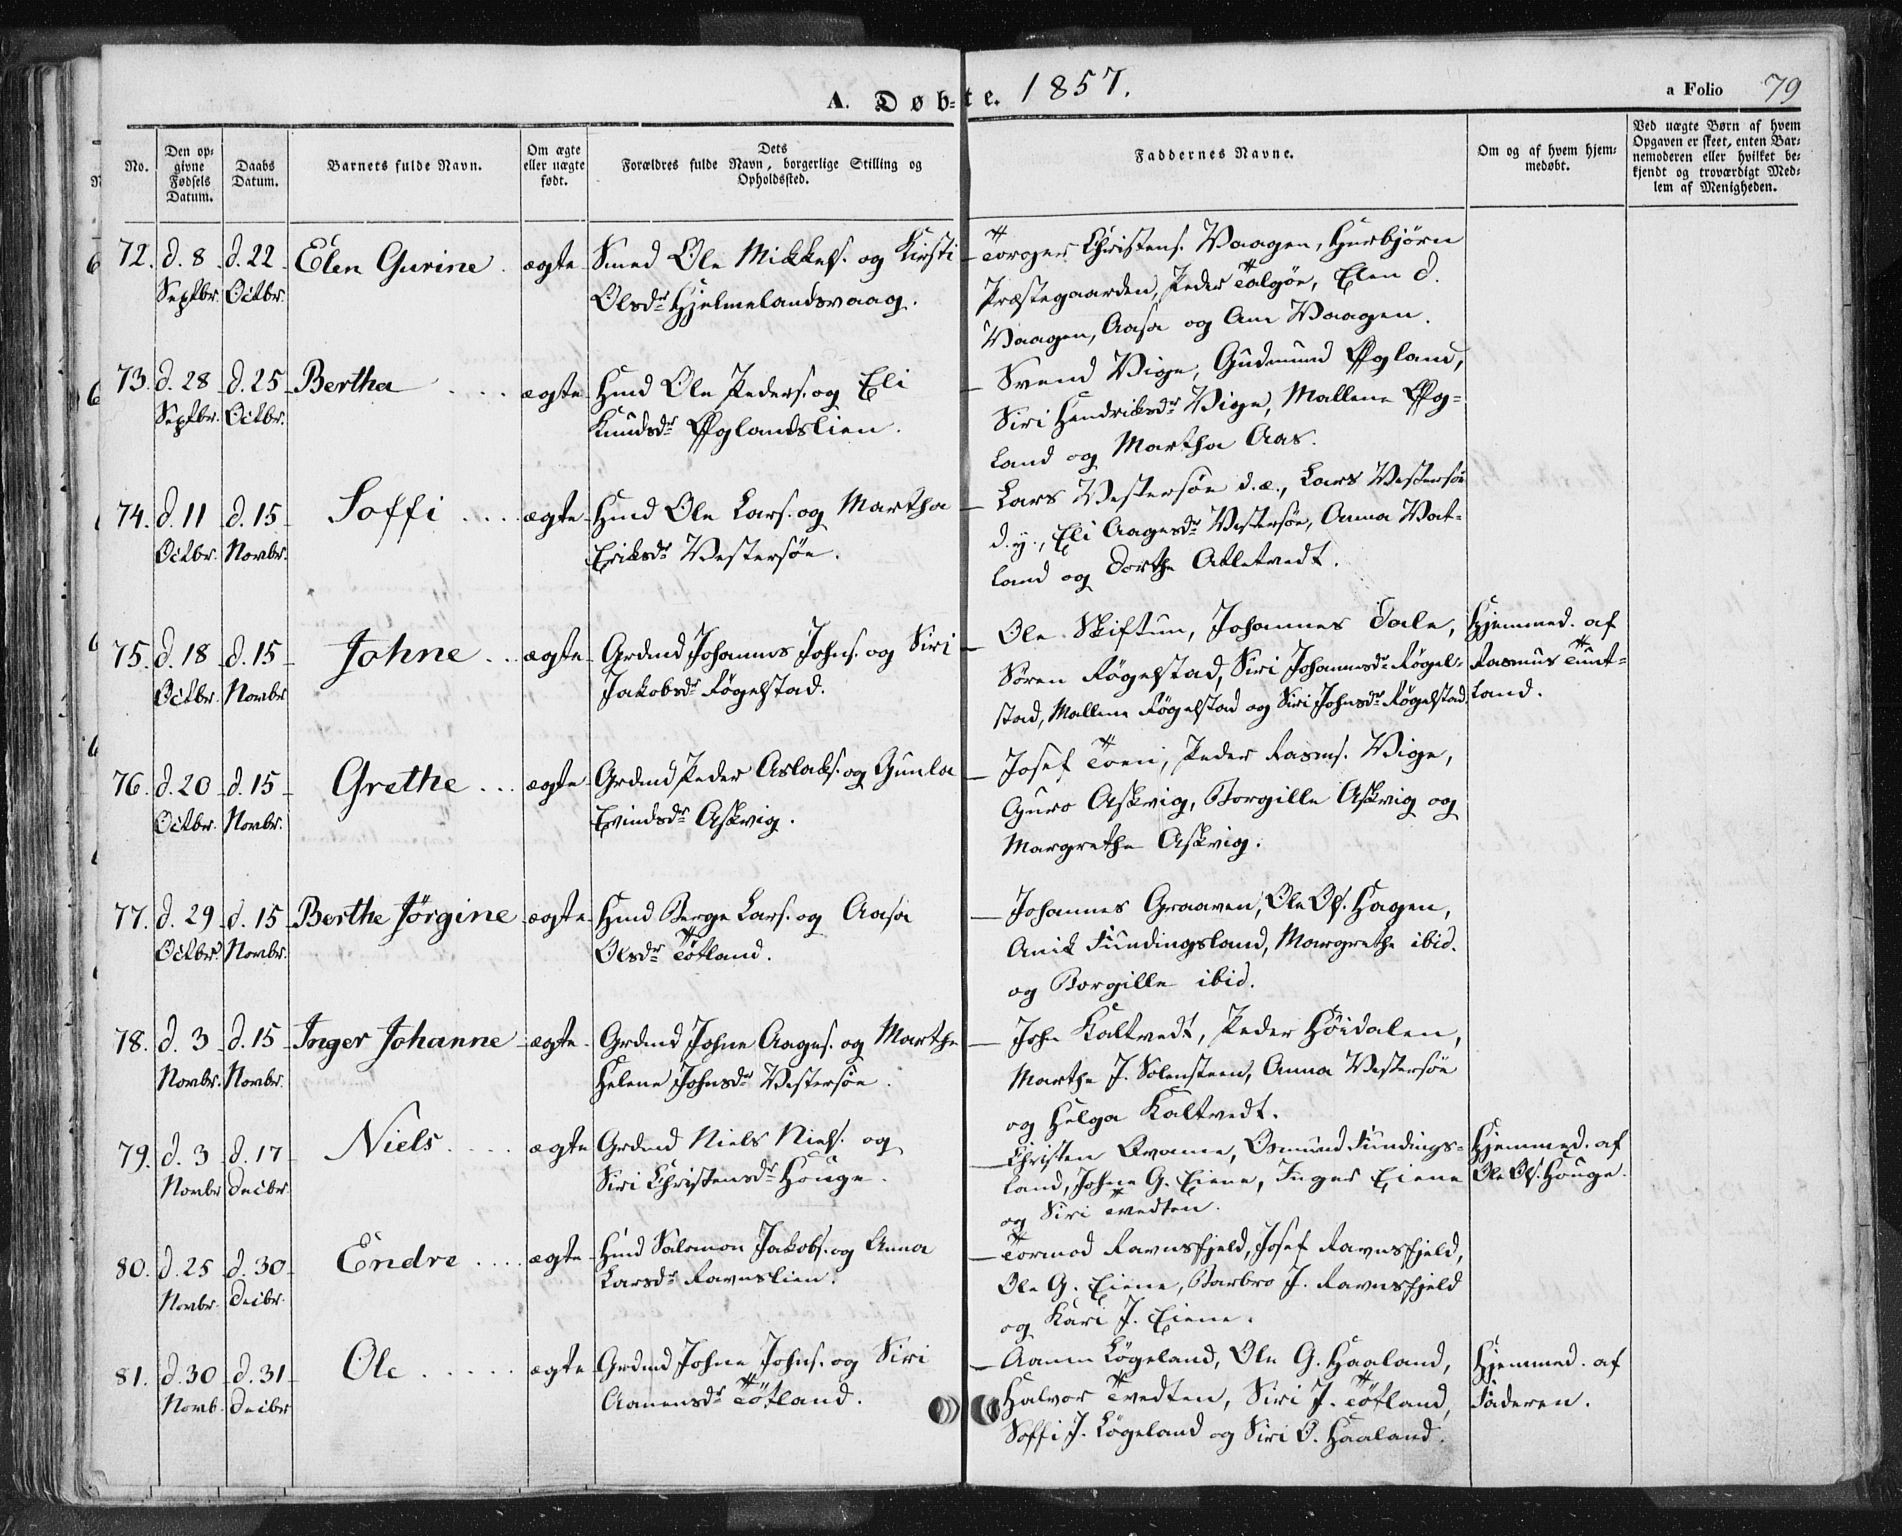 A. Døb=te. 1857.
a Folio 79
No.
Den op=
givne
Fødsels
Datum.
Daabs
Datum.
Barnets fulde Navn.
Om ægte
eller uægte
født.
Dets
Forældres fulde Navn, borgerlige Stilling og
Opholdssted.
Faddernes Navne.
Om og af hvem hjem=
medøbt.
Ved uægte Børn af hvem
Opgaven er skeet, enten Bar=
nemoderen eller hvilket be=
kjendt og troværdigt Med=
lem af Menigheden.
72. d. 8 Septbr. d. 22 Octbr. Elen Gurine. ægte
Smed Ole Mikkels. og Kirsti
Olsdr Hjelmelandsvaag.
Torger Christens. Vaagen, Herbjørn
Præstegaarden, Peder Talgøe, Elen d.
Vaagen, Aasa og Ane Vaagen.
73. d. 28 Septbr. d. 25 Octbr. Bertha .... ægte
Hmd Ole Peders. og Eli
Knudsdr Øglandslien.
Svend Vige, Gudmund Øgland,
Siri Hendriksdr Vige, Mallene Øg=
land og Martha Aas.
74. d. 11 Octbr. d. 15 Novbr. Soffi .... ægte
Hmd Ole Lars. og Martha
Eriksdr Vestersøe.
Lars Vestersøe d.æ., Lars Vestersøe
d.y., Eli Aagesdr Vestersøe, Anna Vat=
land og Dorthe Atletvedt.
75. d. 18 Octbr. d. 15 Novbr. Johne ... ægte
Grdmd Johannes Johns. og Siri
Jakobsdr Føgelstad.
Ole Skiftun, Johannes Dale,
Søren Føgelstad, Siri Johannesdr Føgel=
stad, Mallene Føgelstad og Siri Johnsdr Føgelstad.
Hjemmed. af
Rasmus Tunt=
land.
76. d. 20 Octbr. d. 15 Novbr. Grethe ... ægte
Grdmd Peder Aslaks. og Gunla
Evindsdr Askvig.
Josef Toen, Peder Rasms. Vige,
Guro Askvig, Borgille Askvig og
Margrethe Askvig.
77. d. 29 Octbr. d. 15 Novbr. Berthe Jørgine ægte
Hmd Berge Lars. og Aasa
Olsdr Tøtland.
Johannes Graaven, Ole Ols. Hagen,
Anik Fundingsland, Margrethe ibid.
og Borgille ibid.
78. d. 3 Novbr. d. 15 Novbr. Inger Johanne ægte
Grdmd Johne Aages. og Marthe
Helene Johnsdr Vestersøe.
John Kaltvedt, Peder Høidalen,
Marthe J. Solensteen, Anna Vestersøe
og Helga Kaltvedt.
79. d. 3 Novbr d. 17 Decbr Niels .... ægte
Grdmd Niels Niels. og
Siri Christensdr Houge.
Christen Qvame, Osmund Fundings=
land, Johne G. Eiene, Inger Eiene
og Siri Tvedten.
Hjemmed. af
Ole Ols. Houge.
80. d. 25 Novbr. d. 30 Decbr. Endre .... ægte
Hmd Salomon Jakobs. og Anna
Larsdr Ravnslien.
Tormod Ravnsfjeld, Josef Ravnsfjeld,
Ole G. Eiene, Barbro J. Ravnsfjeld
og Kari J. Eiene.
81. d. 30 Novb. d. 31 Decbr Ole ..... ægte
Grdmd Johne Johns. og Siri
Aanensdr Tøtland.
Aanen Løgeland, Ole G. Haaland,
Halvor Tvedten, Siri J. Tøtland,
Soffi J. Løgeland og Siri O. Haaland.
Hjemmed. af
Faderen.